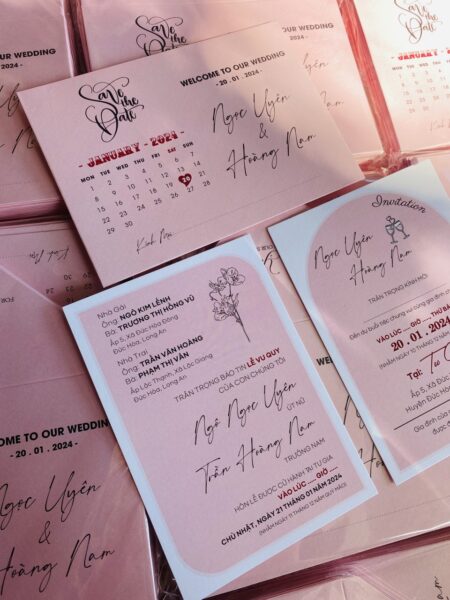 Save
the
Date
WELCOME TO OUR WEDDING
- 20 . 01 . 2024 -
Ngọc Uyên
&
Hoàng Nam
- JANUARY - 2024 -
MON TUE WED THU FRI SAT SUN
1 2 3 4 5 6 7
8 9 10 11 12 13 14
15 16 17 18 19 20 21
22 23 24 25 26 27 28
29 30 31
Kính Mời
Nhà Gái
Ông: NGÔ KIM LÊNH
Bà: TRƯƠNG THỊ HỒNG VŨ
Ấp 5, Xã Đức Hòa Đông
Đức Hòa, Long An
Nhà Trai
Ông: TRẦN VĂN HOÀNG
Bà: PHẠM THỊ VÂN
Ấp Lộc Thạnh, Xã Lộc Giang
Đức Hòa, Long An
TRÂN TRỌNG BÁO TIN LỄ VU QUY
CỦA CON CHÚNG TÔI
Ngô Ngọc Uyên
ÚT NỮ
Trần Hoàng Nam
TRƯỞNG NAM
HÔN LỄ ĐƯỢC CỬ HÀNH TẠI TƯ GIA
VÀO LÚC .... GIỜ ....
CHỦ NHẬT, NGÀY 21 THÁNG 01 NĂM 2024
(NHẰM NGÀY 11 THÁNG 12 NĂM QUÝ MÃO)
Invitation
Ngọc Uyên
Hoàng Nam
TRÂN TRỌNG KÍNH MỜI
Đến dự buổi tiệc chung vui cùng gia đình
VÀO LÚC ... GIỜ ... THỨ BẢ
20 . 01 . 2024
(NHẰM NGÀY 10 THÁNG 12 NĂM
Tại: Tư
Ấp 5, Xã
Huyện Đức Hò
Gia đình
được đ
WELCOME TO OUR WEDDING
- 20 . 01 . 2024 -
Ngọc Uyên
&
Hoàng Nam
WELCOME TO OUR WEDDING
- 20 . 01 . 2024 -
Save
the
Date
JANUARY
MON TUE WED
Uyên
Nam
Kính Mời